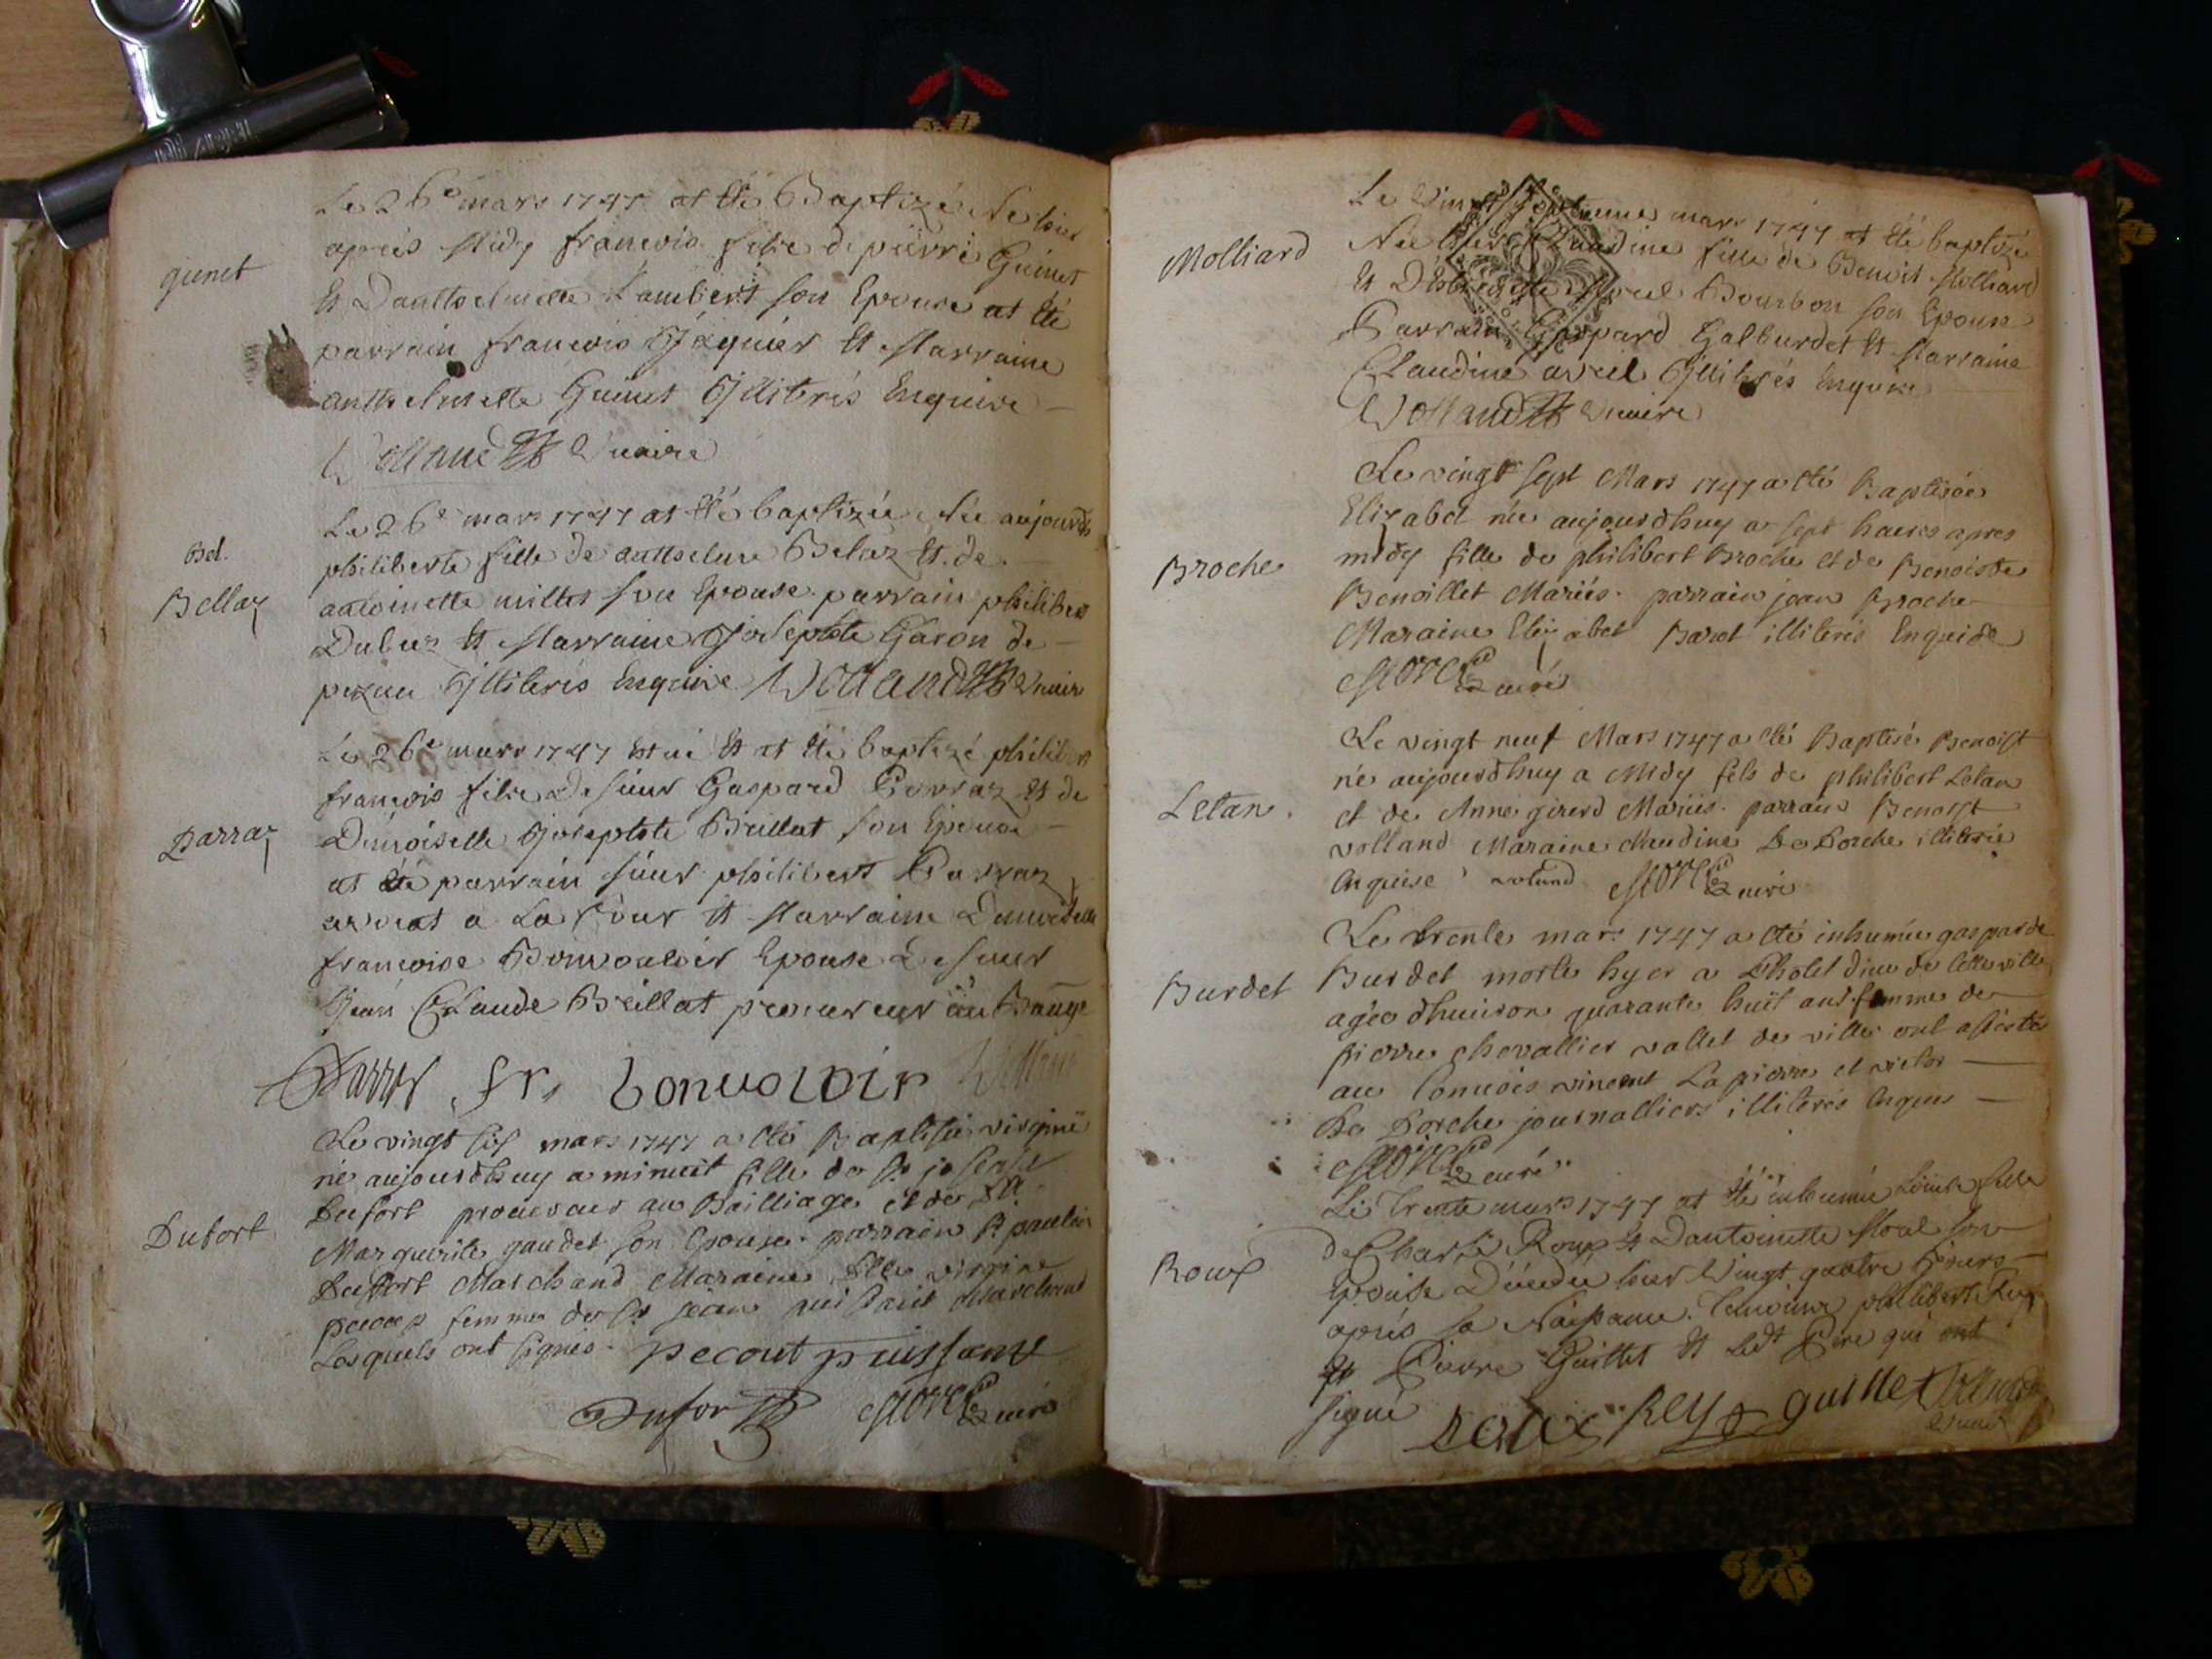 Le 26e mars 1747 at été Baptizé Né hier
après Midy francois fils de pierre Guinet
guinet
Et Danthelmette Lambert son Epouse at été
parrain francois Jáquier Et Marraine
anthelmette Guinet Illiterés Enquise
Volland Vicaire
Le 26e mars 1747 at été baptizée Née aujourdh
philiberte fille de anthelme Belaz Et de
Bel.
Bellaz
antoinette millet son Epouse parrain philibert
Et Marraine Josephte Garon de
Illiterés Enquise Volland Vicaire
Le 26e mars 1747 Est né Et at été baptizé philibert
francois fils De sieur Gaspard Parraz Et de
Parraz
Demoiselle Josephte Brillat son Epouse
at été parrain sieur philibert Parraz
avocat a La Cour Et Marraine Demoiselle
francoise Bonvouloir Epouse De sieur
Jean Claude Brillat procureur au
Parraz fr. bonvoloir Volland
Le vingt six mars 1747 a eté Baptisée virginie
née aujourdhuy a minuit fille de Sr joseph
Dufort procureur au Bailliage et de Dlle
Dufort
Marguerite gaudet son Epouse parrain Sr paulin
Dufort Marchand Maraine Dlle virginie
femme de Sr jean puissant Marchand
Lesquels ont signés. pecout puissant
Dufort curé
Le Vingt mars 1747 at été baptizée
Molliard
Née hier Claudine fille de Benoit Molliard
Et Bourbon son Epouse
Parrain Gaspard Galburdet Et Marraine
Claudine avril Illiterés Enquise
Volland Vicaire
Le vingt sept Mars 1747 a eté Baptisée
Elizabet née aujourdhuy a sept heures apres
Broche
midy fille de philibert Broche et de Benoiste
Benoillet Mariés. parrain jean Broche
Maraine Elizabet illiterés Enquise
curé
Le vingt neuf Mars 1747 a eté Baptisé Benoist
né aujourdhuy a Midy fils de philibert Letan
Letan.
et de Anne girerd Mariés. parrain Benoist
volland Maraine Claudine La Porche illiterée
Enquise voland curé
Le trente mars 1747 a eté inhumée gasparde
Burdet
Burdet morte hyer a Lhotel dieu de cette ville
agée dhuiron quarante huit ans femme de
pierre chevallier vallet de ville ont assisté
au Convois vincent Lapierre et victor
La Porche journalliers illiterés Enquis
curé
Le trente mars 1747 at été inhumée Louise fille
Roux
de Charle Roux Et Dantoinette son
Epouse Décédée hier Vingt quatre jours
après sa Naissance. Temoins philibert Rey
Et Pierre Guillet Et Ledt Père qui ont
signé Roux Rey guillet Volland
Vicaire